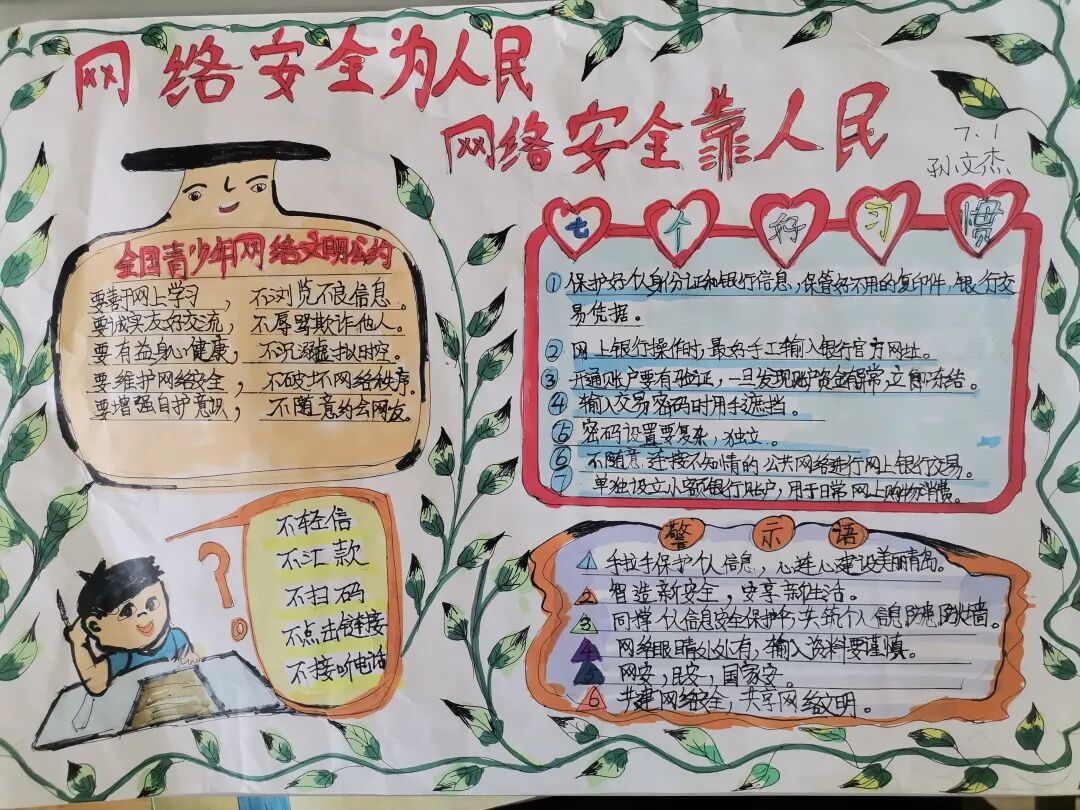 网络安全为人民
网络安全靠人民
7.1
孙文杰
全国青少年网络文明公约
要善于网上学习，不浏览不良信息。
要诚实友好交流，不辱骂欺诈他人。
要有益身心健康，不沉溺虚拟时空。
要维护网络安全，不破坏网络秩序。
要增强自护意识，不随意约会网友。
不轻信
不汇款
不扫码
不点击链接
不接听电话
七个好习惯
①保护好个人身份证和银行信息，保管好不用的复印件，银行交
易凭据。
②网上银行操作时，最好手工输入银行官方网址。
③开通账户要有验证，一旦发现账户资金有异常，立即冻结。
④输入交易密码时用手遮挡。
⑤密码设置要复杂，独立。
⑥不随意连接不知情的公共网络进行网上银行交易。
⑦单独设立小额银行账户，用于日常网上购物消费。
警示语
1 手拉手保护个人信息，心连心建设美丽青岛。
2 智造新安全，安享新生活。
3 同撑个人信息安全保护伞，共筑个人信息防患防火墙。
4 网络眼睛处处有，输入资料要谨慎。
5 网安，民安，国家安。
6 共建网络安全，共享网络文明。